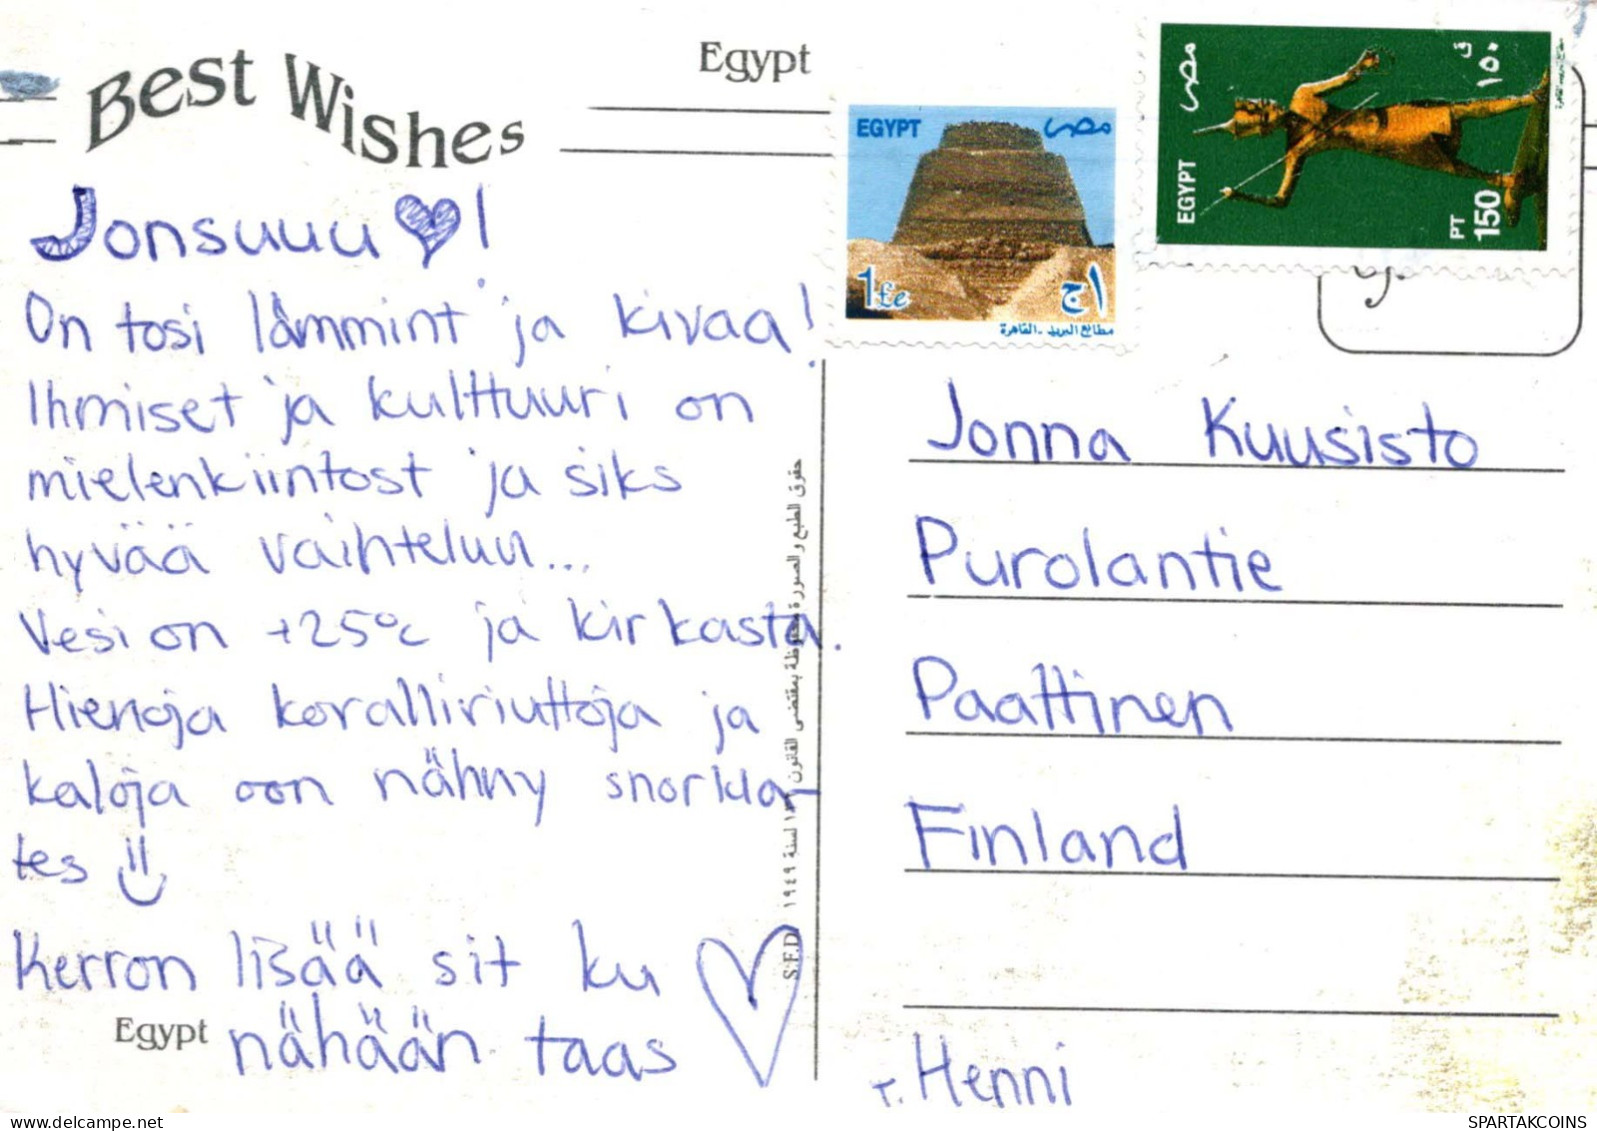 Best Wishes
Egypt
EGYPT
مصر
1 £e
١ ج
مطابع البريد - القاهرة
مصر
١٥٠ ق
EGYPT
PT
150
Jonsuuu ♥!
On tosi lämmint ja kivaa!
Ihmiset ja kulttuuri on
mielenkiintost ja siks
hyvää vaihteluu...
Vesi on +25°c ja kirkasta.
Hienoja koralliriuttoja ja
kaloja oon nähny snorkla-
tes
Kerron lisää sit ku
nähään taas
Egypt
حقوق الطبع والصورة محفوظة بمقتضى القانون لسنة ١٩٤٩
S.F.D.
Jonna Kuusisto
Purolantie
Paattinen
Finland
T. Henni
SPARTAKCOINS